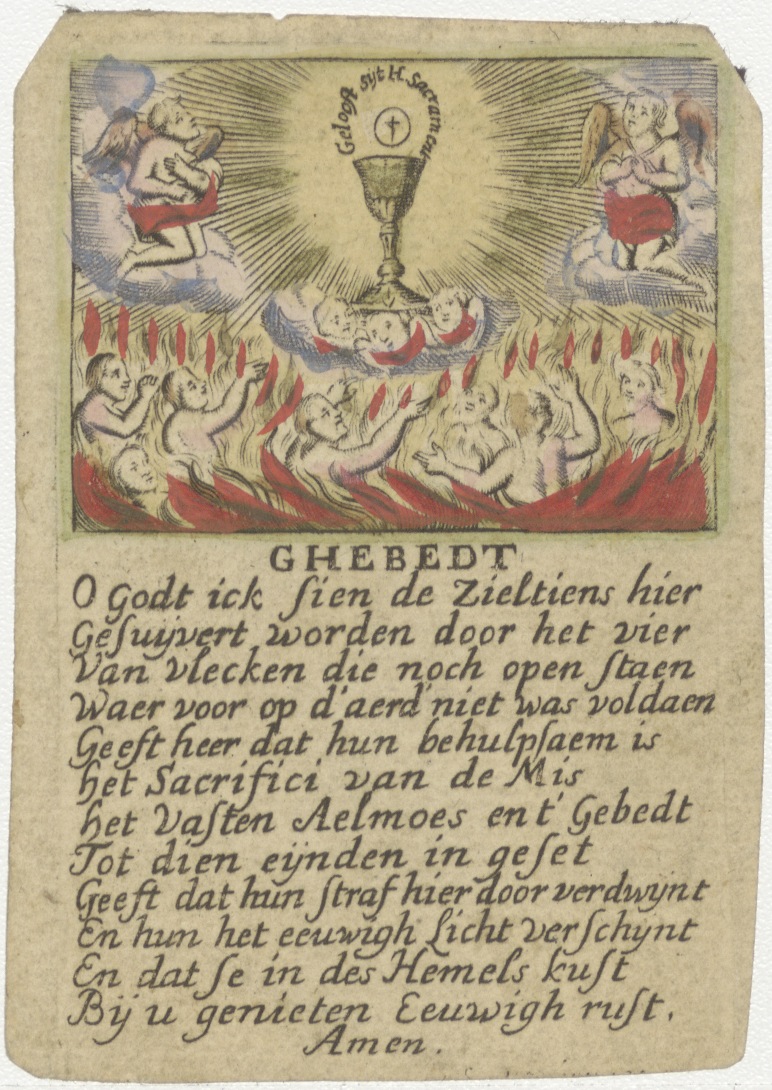 Gelooft sijt H. Sacrament
GHEBEDT
O Godt ick ſien de Zieltiens hier
Geſuijvert worden door het vier
Van vlecken die noch open ſtaen
Waer voor op d'aerd niet was voldaen
Geeft heer dat hun behulpſaem is
het Sacrifici van de Mis
het Vaſten Aelmoes en t' Gebedt
Tot dien eijnden in geſet
Geeft dat hun ſtraf hier door verdwynt
En hun het eeuwigh Licht verſchynt
En dat ſe in des Hemels kuſt
Bij u genieten Eeuwigh ruſt.
Amen.